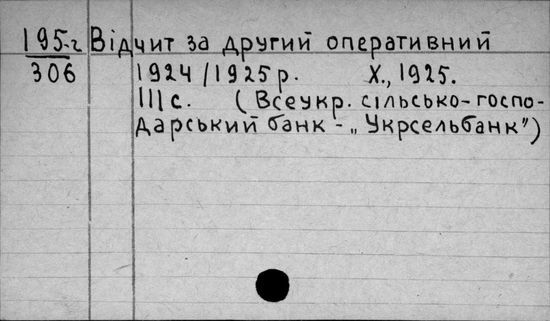 195-г Відчит за другий оперативний
306 1924/1925 р. Х., 1925.
111 с. (Всеукр. сільсько-госпо-
дарський банк - „Укрсельбанк")